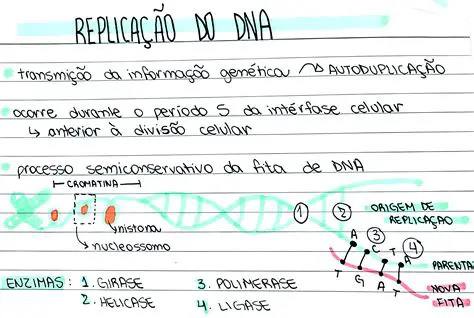 REPLICAÇÃO DO DNA
transmição da informação genética ~> AUTODUPLICAÇÃO
ocorre durante o período S da intérfase celular
↳ anterior à divisão celular
processo semiconservativo da fita de DNA
CROMATINA
1 2 ORIGEM DE
REPLICAÇÃO
histona
nucleossomo
3 4
A C T A
T G A T
PARENTA
NOVA
FITA
ENZIMAS: 1. GIRASE 3. POLIMERASE
2. HELICASE 4. LIGASE